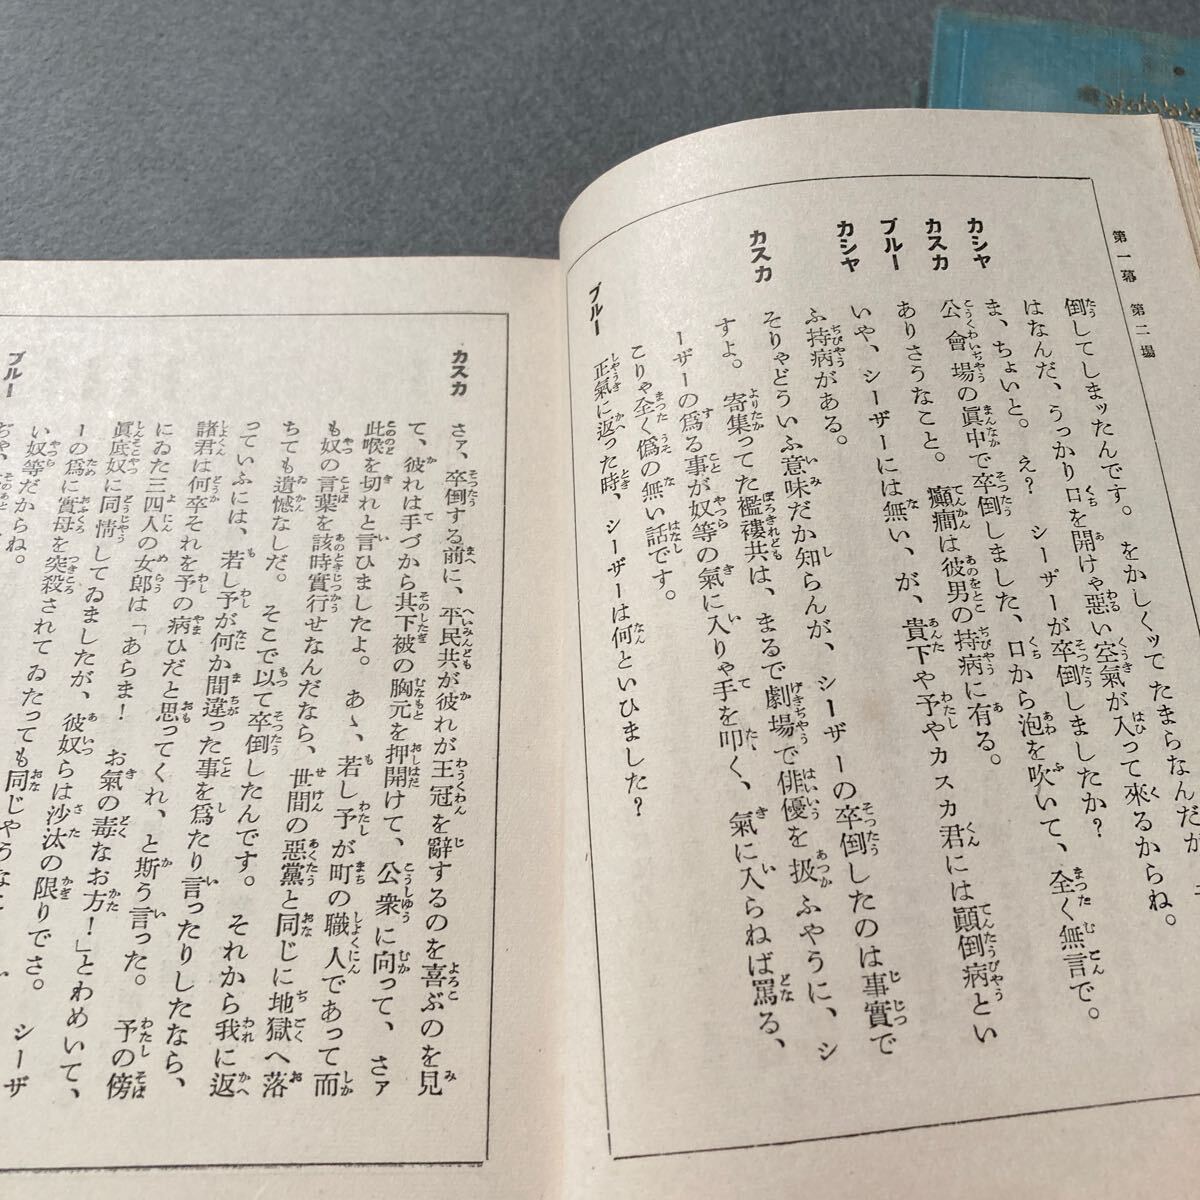 第一幕 第二場
倒してしまッたんです。をかしくッてたまらなんだが、
はなんだ、うっかり口を開けゃ惡い空氣が入って來るからね。
カシヤ ま、ちょいと。え? シーザーが卒倒しましたか?
カスカ 公會場の眞中で卒倒しました、口から泡を吹いて、全く無言で。
ブルー ありさうなこと。癲癇は彼男の持病に有る。
カシヤ いや、シーザーには無い、が、貴下や予やカスカ君には顚倒病とい
ふ持病がある。
カスカ そりゃどういふ意味だか知らんが、シーザーの卒倒したのは事實で
すよ。寄集った襤褸共は、まるで劇場で俳優を扱ふやうに、シ
ーザーの爲る事が奴等の氣に入りゃ手を叩く、氣に入らねば罵る、
こりゃ全く僞の無い話です。
ブルー 正氣に返った時、シーザーは何といひました?
カスカ さァ、卒倒する前に、平民共が彼れが王冠を辭するのを喜ぶのを見
て、彼れは手づから其下被の胸元を押開けて、公衆に向って、さァ
此喉を切れと言ひましたよ。あゝ、若し予が町の職人であって而
も奴の言葉を該時實行せなんだなら、世間の惡黨と同じに地獄へ落
ちても遺憾なしだ。そこで以て卒倒したんです。それから我に返
っていふには、若し予が何か間違った事を爲たり言ったりしたなら、
諸君は何卒それを予の病ひだと思ってくれ、と斯う言った。予の傍
にゐた三四人の女郎は「あらま! お氣の毒なお方!」とわめいて、
眞底奴に同情してゐましたが、彼奴らは沙汰の限りでさ。シーザ
ーの爲に實母を突殺されてゐたっても同じやうなこ
い奴等だからね。
ブルー ぢや、そのあと